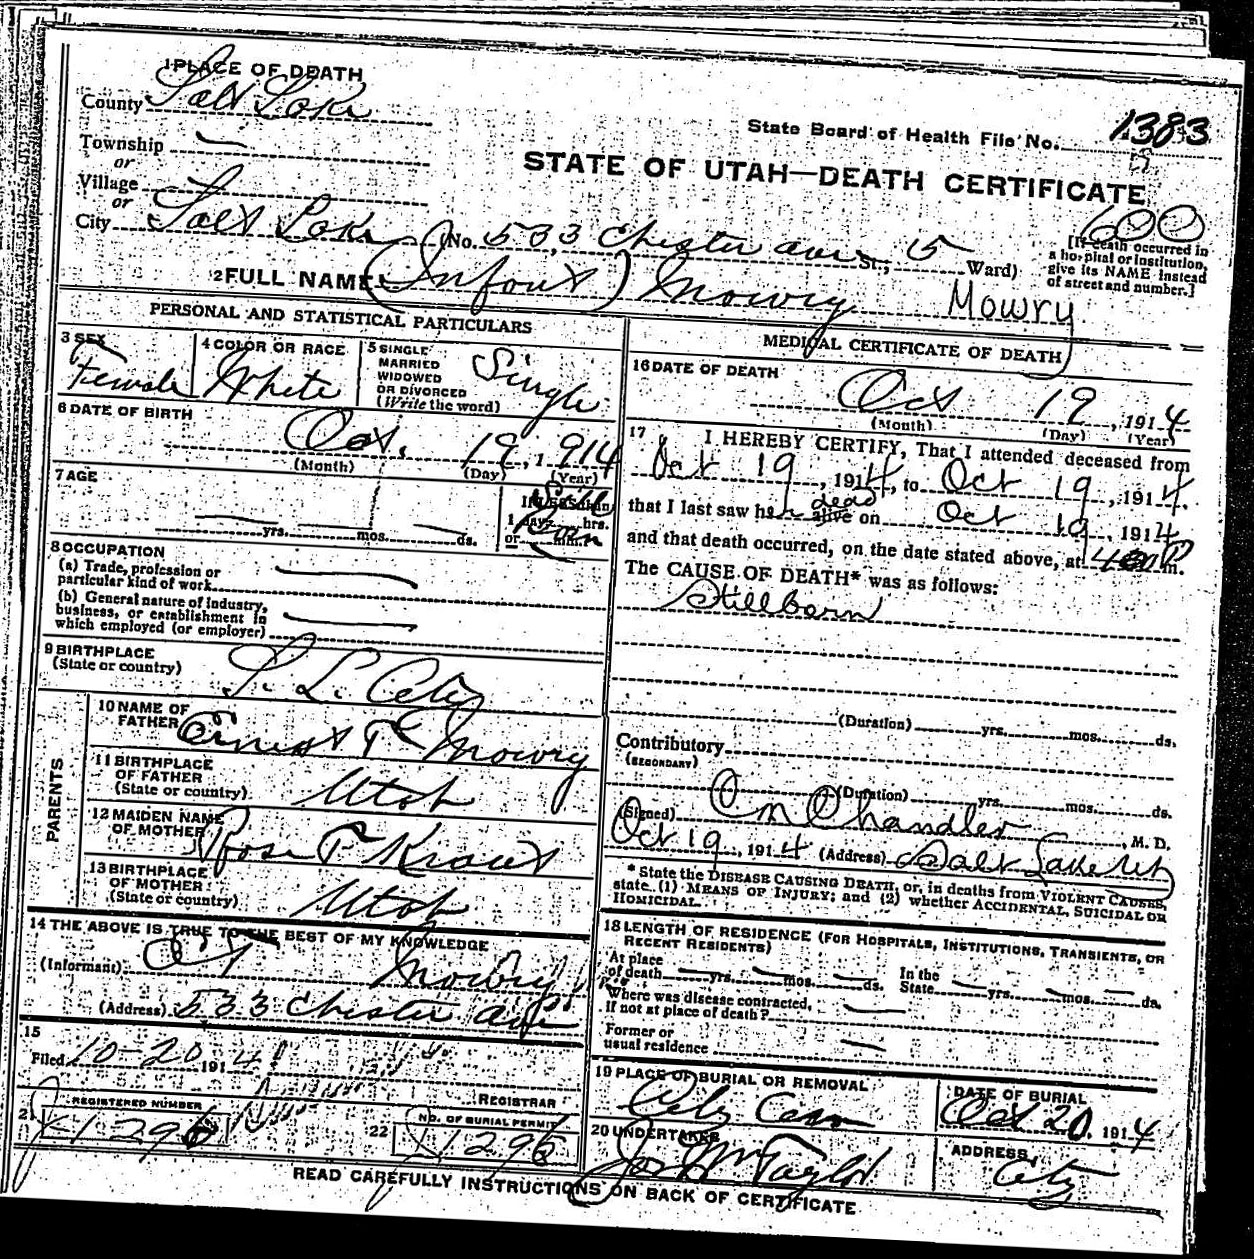 1 PLACE OF DEATH
County Salt Lake
State Board of Health File No. 1383
Township —
or
STATE OF UTAH—DEATH CERTIFICATE
Village
or
600
City Salt Lake (No. 533 Chester ave St.; 5 Ward)
[If death occurred in
a hospital or institution,
give its NAME instead
of street and number.]
2 FULL NAME (Infant) Mowry Mowry
PERSONAL AND STATISTICAL PARTICULARS
3 SEX
Female
4 COLOR OR RACE
White
5 SINGLE
MARRIED
WIDOWED
OR DIVORCED
(Write the word)
Single
6 DATE OF BIRTH
Oct. 19, 1914
(Month) (Day) (Year)
7 AGE
— yrs. mos. — ds.
1 day, hrs.
or min.
Still
Born
8 OCCUPATION
(a) Trade, profession or
particular kind of work —
(b) General nature of industry,
business, or establishment in
which employed (or employer) —
9 BIRTHPLACE
(State or country) S. L. City
PARENTS
10 NAME OF
FATHER Ernest T Mowry
11 BIRTHPLACE
OF FATHER
(State or country) Utah
12 MAIDEN NAME
OF MOTHER Rose F Kraut
13 BIRTHPLACE
OF MOTHER
(State or country) Utah
14 THE ABOVE IS TRUE TO THE BEST OF MY KNOWLEDGE
(Informant) Mowry
(Address) 533 Chester ave
15
Filed 10-20, 1914
REGISTRAR
21 REGISTERED NUMBER
J 1296
22 NO. OF BURIAL PERMIT
J 1296
MEDICAL CERTIFICATE OF DEATH
16 DATE OF DEATH
Oct 19, 1914
(Month) (Day) (Year)
17 I HEREBY CERTIFY, That I attended deceased from
Oct 19, 1914, to Oct 19, 1914.
that I last saw her alive dead on Oct 19, 1914
and that death occurred, on the date stated above, at 400 P m.
The CAUSE OF DEATH* was as follows:
Stillborn
(Duration) yrs. mos. ds.
Contributory
(SECONDARY)
(Duration) yrs. mos. ds.
(Signed) O M Chandler, M. D.
Oct 19, 1914 (Address) Salt Lake Ut
* State the DISEASE CAUSING DEATH, or, in deaths from VIOLENT CAUSES,
state (1) MEANS OF INJURY; and (2) whether ACCIDENTAL, SUICIDAL OR
HOMICIDAL.
18 LENGTH OF RESIDENCE (FOR HOSPITALS, INSTITUTIONS, TRANSIENTS, OR
RECENT RESIDENTS)
At place
of death — yrs. — mos. — ds. In the
State — yrs. — mos. — ds.
Where was disease contracted,
if not at place of death? —
Former or
usual residence —
19 PLACE OF BURIAL OR REMOVAL
City Cem
DATE OF BURIAL
Oct 20, 1914
20 UNDERTAKER
Jos Wm Taylor
ADDRESS
City
READ CAREFULLY INSTRUCTIONS ON BACK OF CERTIFICATE